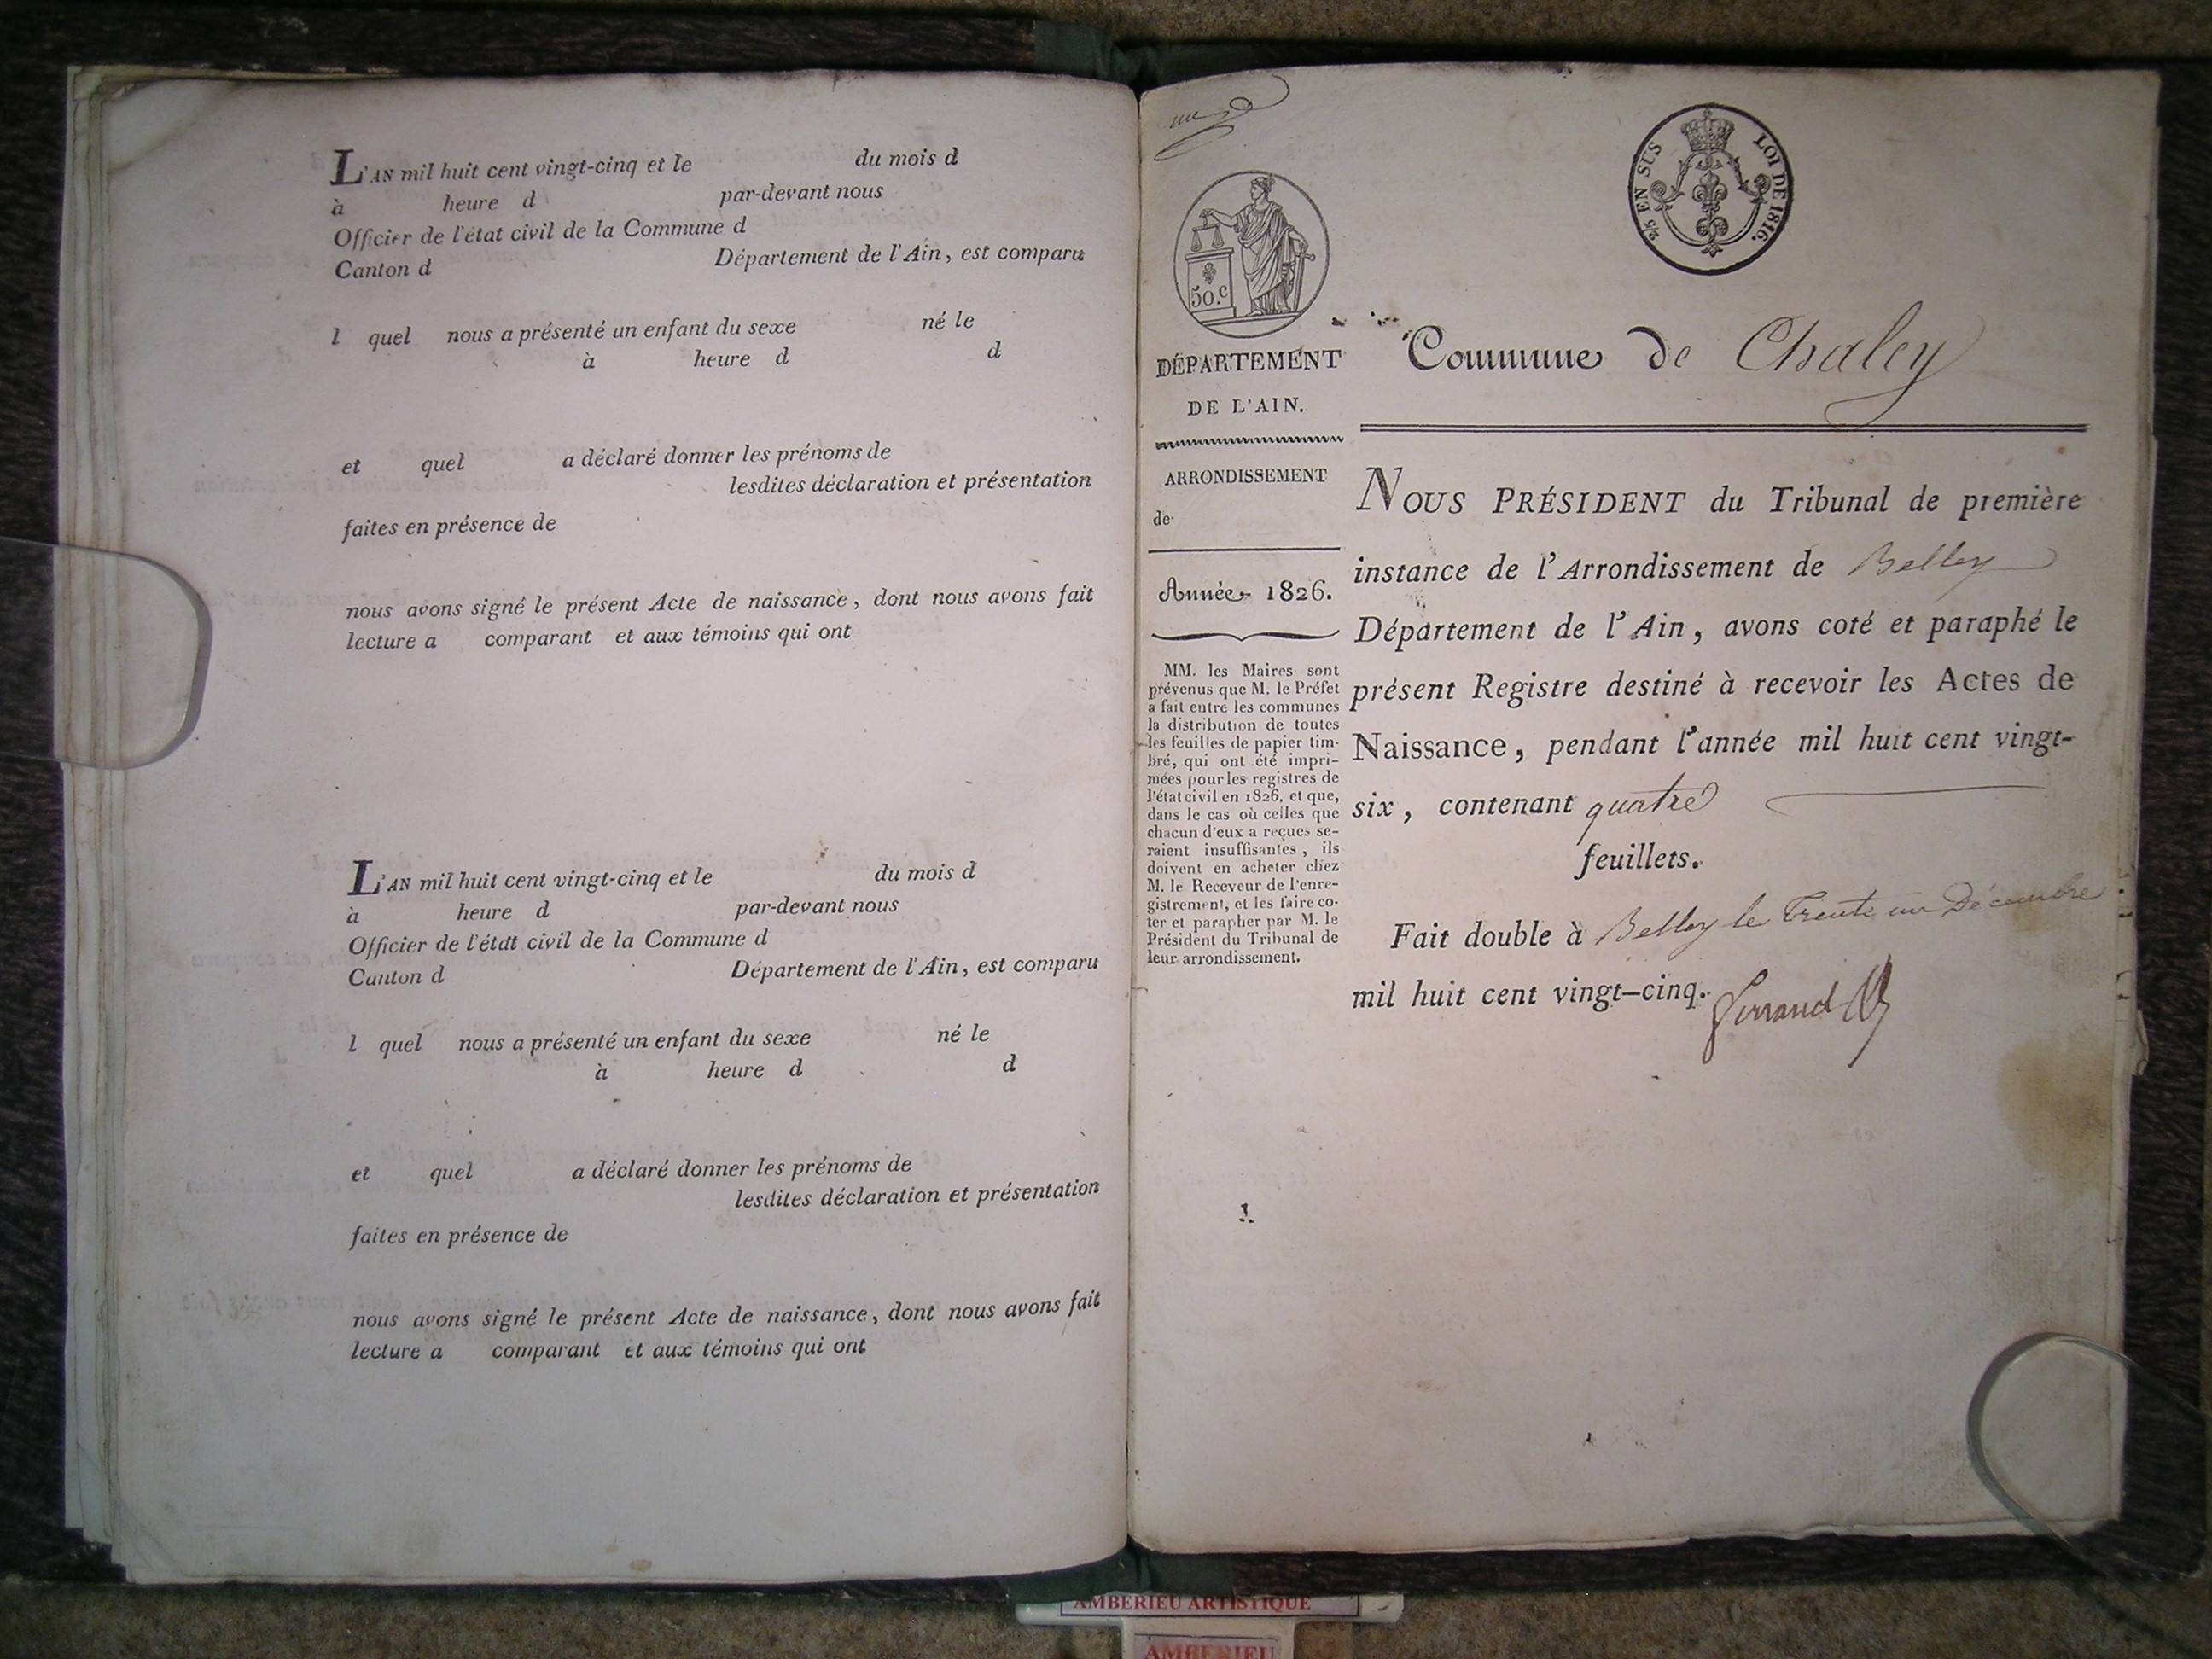 L'AN mil huit cent vingt-cinq et le du mois d
à heure d par-devant nous
Officier de l'état civil de la Commune d
Canton d Département de l'Ain, est comparu
l quel nous a présenté un enfant du sexe né le
à heure d d
et quel a déclaré donner les prénoms de
lesdites déclaration et présentation
faites en présence de
nous avons signé le présent Acte de naissance, dont nous avons fait
lecture a comparant et aux témoins qui ont
L'AN mil huit cent vingt-cinq et le du mois d
à heure d par-devant nous
Officier de l'état civil de la Commune d
Canton d Département de l'Ain, est comparu
l quel nous a présenté un enfant du sexe né le
à heure d d
et quel a déclaré donner les prénoms de
lesdites déclaration et présentation
faites en présence de
nous avons signé le présent Acte de naissance, dont nous avons fait
lecture a comparant et aux témoins qui ont
2/5 EN SUS LOI DE 1816.
50.c
DÉPARTEMENT
DE L'AIN.
ARRONDISSEMENT
de
Année 1826.
MM. les Maires sont
prévenus que M. le Préfet
a fait entre les communes
la distribution de toutes
les feuilles de papier tim-
bré, qui ont été impri-
mées pour les registres de
l'état civil en 1826, et que,
dans le cas où celles que
chacun d'eux a reçues se-
raient insuffisantes, ils
doivent en acheter chez
M. le Receveur de l'enre-
gistrement, et les faire co-
ter et parapher par M. le
Président du Tribunal de
leur arrondissement.
Commune de Chaley
NOUS PRÉSIDENT du Tribunal de première
instance de l'Arrondissement de Belley
Département de l'Ain, avons coté et paraphé le
présent Registre destiné à recevoir les Actes de
Naissance, pendant l'année mil huit cent vingt-
six, contenant quatre
feuillets.
Fait double à Belley le Trente un Décembre
mil huit cent vingt-cinq.
AMBERIEU ARTISTIQUE
AMBERIEU